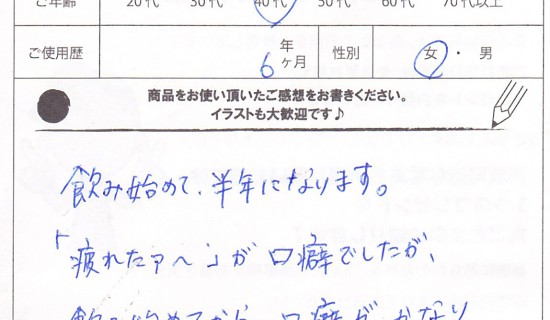 ご年齢 20代 30代 40代 50代 60代 70代以上
ご使用歴 6 年 ヶ月 性別 女 ・ 男
商品をお使い頂いたご感想をお書きください。
イラストも大歓迎です♪
飲み始めて、半年になります。
「疲れたァ〜」が口癖でしたが、
飲み始めてから、口癖が、かなり